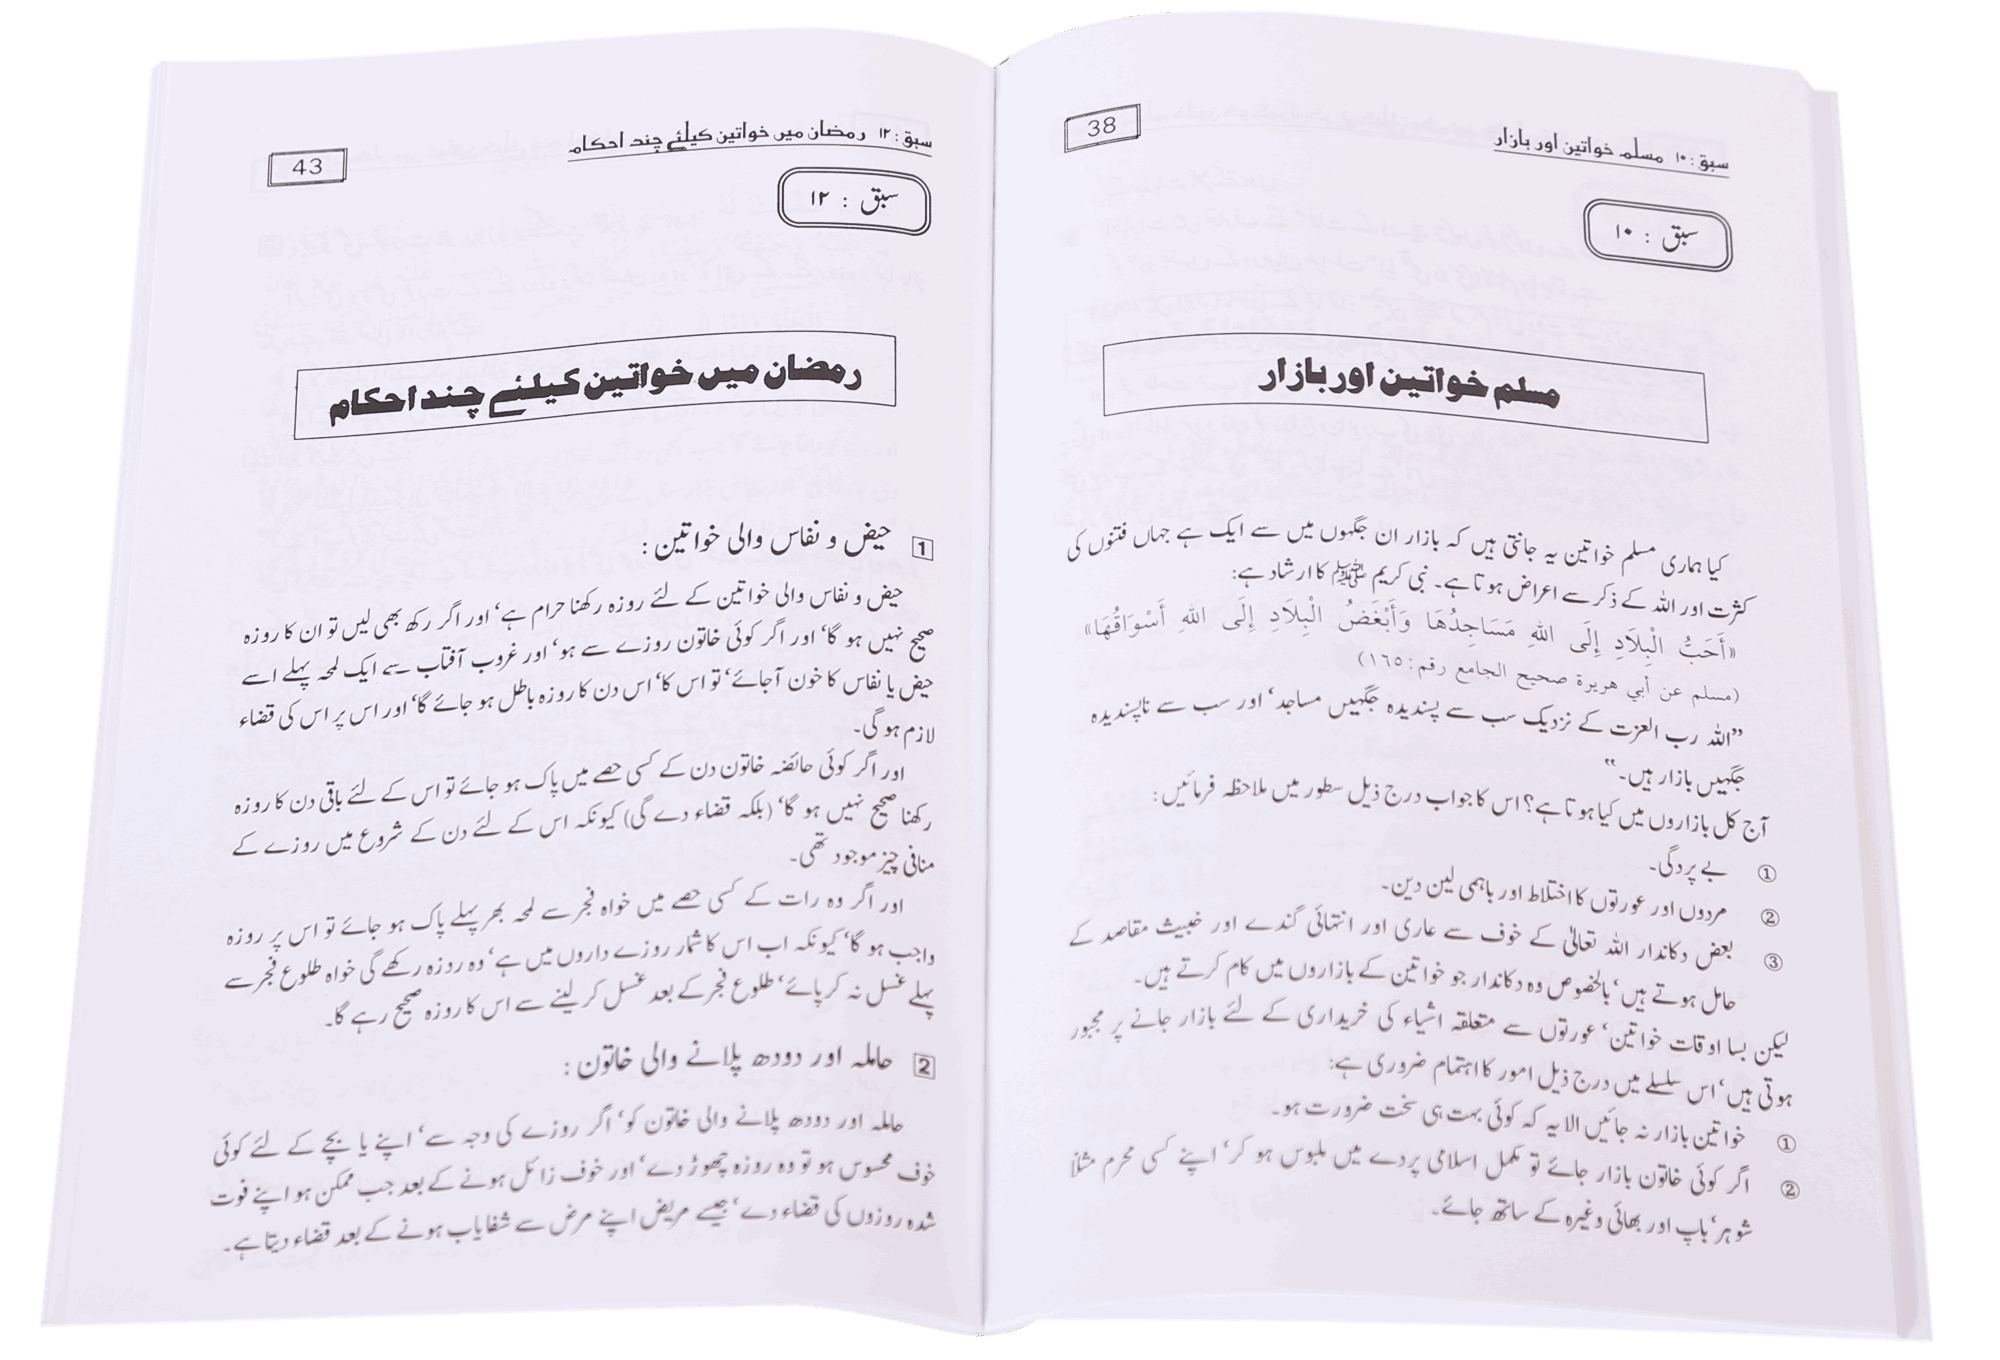 سبق: ۱۰ مسلمہ خواتین اور بازار
38
سبق : ۱۰
مسلم خواتین اور بازار
کیا ہماری مسلم خواتین یہ جانتی ہیں کہ بازار ان جگہوں میں سے ایک ہے جہاں فتنوں کی
کثرت اور اللہ کے ذکر سے اعراض ہوتا ہے۔ نبی کریم ﷺ کا ارشاد ہے:
«أَحَبُّ الْبِلَادِ إِلَى اللهِ مَسَاجِدُهَا وَأَبْغَضُ الْبِلَادِ إِلَى اللهِ أَسْوَاقُهَا»
(مسلم عن أبي هريرة صحيح الجامع رقم: ١٦٥)
”اللہ رب العزت کے نزدیک سب سے پسندیدہ جگہیں مساجد‘ اور سب سے ناپسندیدہ
جگہیں بازار ہیں۔“
آج کل بازاروں میں کیا ہوتا ہے؟ اس کا جواب درج ذیل سطور میں ملاحظہ فرمائیں:
① بے پردگی۔
② مردوں اور عورتوں کا اختلاط اور باہمی لین دین۔
③ بعض دکاندار اللہ تعالیٰ کے خوف سے عاری اور انتہائی گندے اور خبیث مقاصد کے
حامل ہوتے ہیں‘ بالخصوص وہ دکاندار جو خواتین کے بازاروں میں کام کرتے ہیں۔
لیکن بسا اوقات خواتین‘ عورتوں سے متعلقہ اشیاء کی خریداری کے لئے بازار جانے پر مجبور
ہوتی ہیں‘ اس سلسلے میں درج ذیل امور کا اہتمام ضروری ہے:
① خواتین بازار نہ جائیں الا یہ کہ کوئی بہت ہی سخت ضرورت ہو۔
② اگر کوئی خاتون بازار جائے تو مکمل اسلامی پردے میں ملبوس ہو کر‘ اپنے کسی محرم مثلاً
شوہر‘ باپ اور بھائی وغیرہ کے ساتھ جائے۔
سبق: ۱۲ رمضان میں خواتین کیلئے چند احکام
43
سبق : ۱۲
رمضان میں خواتین کیلئے چند احکام
1 حیض و نفاس والی خواتین:
حیض و نفاس والی خواتین کے لئے روزہ رکھنا حرام ہے‘ اور اگر رکھ بھی لیں تو ان کا روزہ
صحیح نہیں ہو گا‘ اور اگر کوئی خاتون روزے سے ہو‘ اور غروب آفتاب سے ایک لمحہ پہلے اسے
حیض یا نفاس کا خون آجائے‘ تو اس کا‘ اس دن کا روزہ باطل ہو جائے گا‘ اور اس پر اس کی قضاء
لازم ہوگی۔
اور اگر کوئی حائضہ خاتون دن کے کسی حصے میں پاک ہو جائے تو اس کے لئے باقی دن کا روزہ
رکھنا صحیح نہیں ہو گا‘ (بلکہ قضاء دے گی) کیونکہ اس کے لئے دن کے شروع میں روزے کے
منافی چیز موجود تھی۔
اور اگر وہ رات کے کسی حصے میں خواہ فجر سے لمحہ بھر پہلے پاک ہو جائے تو اس پر روزہ
واجب ہو گا‘ کیونکہ اب اس کا شمار روزے داروں میں ہے‘ وہ روزہ رکھے گی خواہ طلوع فجر سے
پہلے غسل نہ کرپائے‘ طلوع فجر کے بعد غسل کر لینے سے اس کا روزہ صحیح رہے گا۔
2 حاملہ اور دودھ پلانے والی خاتون:
حاملہ اور دودھ پلانے والی خاتون کو‘ اگر روزے کی وجہ سے‘ اپنے یا بچے کے لئے کوئی
خوف محسوس ہو تو وہ روزہ چھوڑ دے‘ اور خوف زائل ہونے کے بعد جب ممکن ہو اپنے فوت
شدہ روزوں کی قضاء دے‘ جیسے مریض اپنے مرض سے شفایاب ہونے کے بعد قضاء دیتا ہے۔